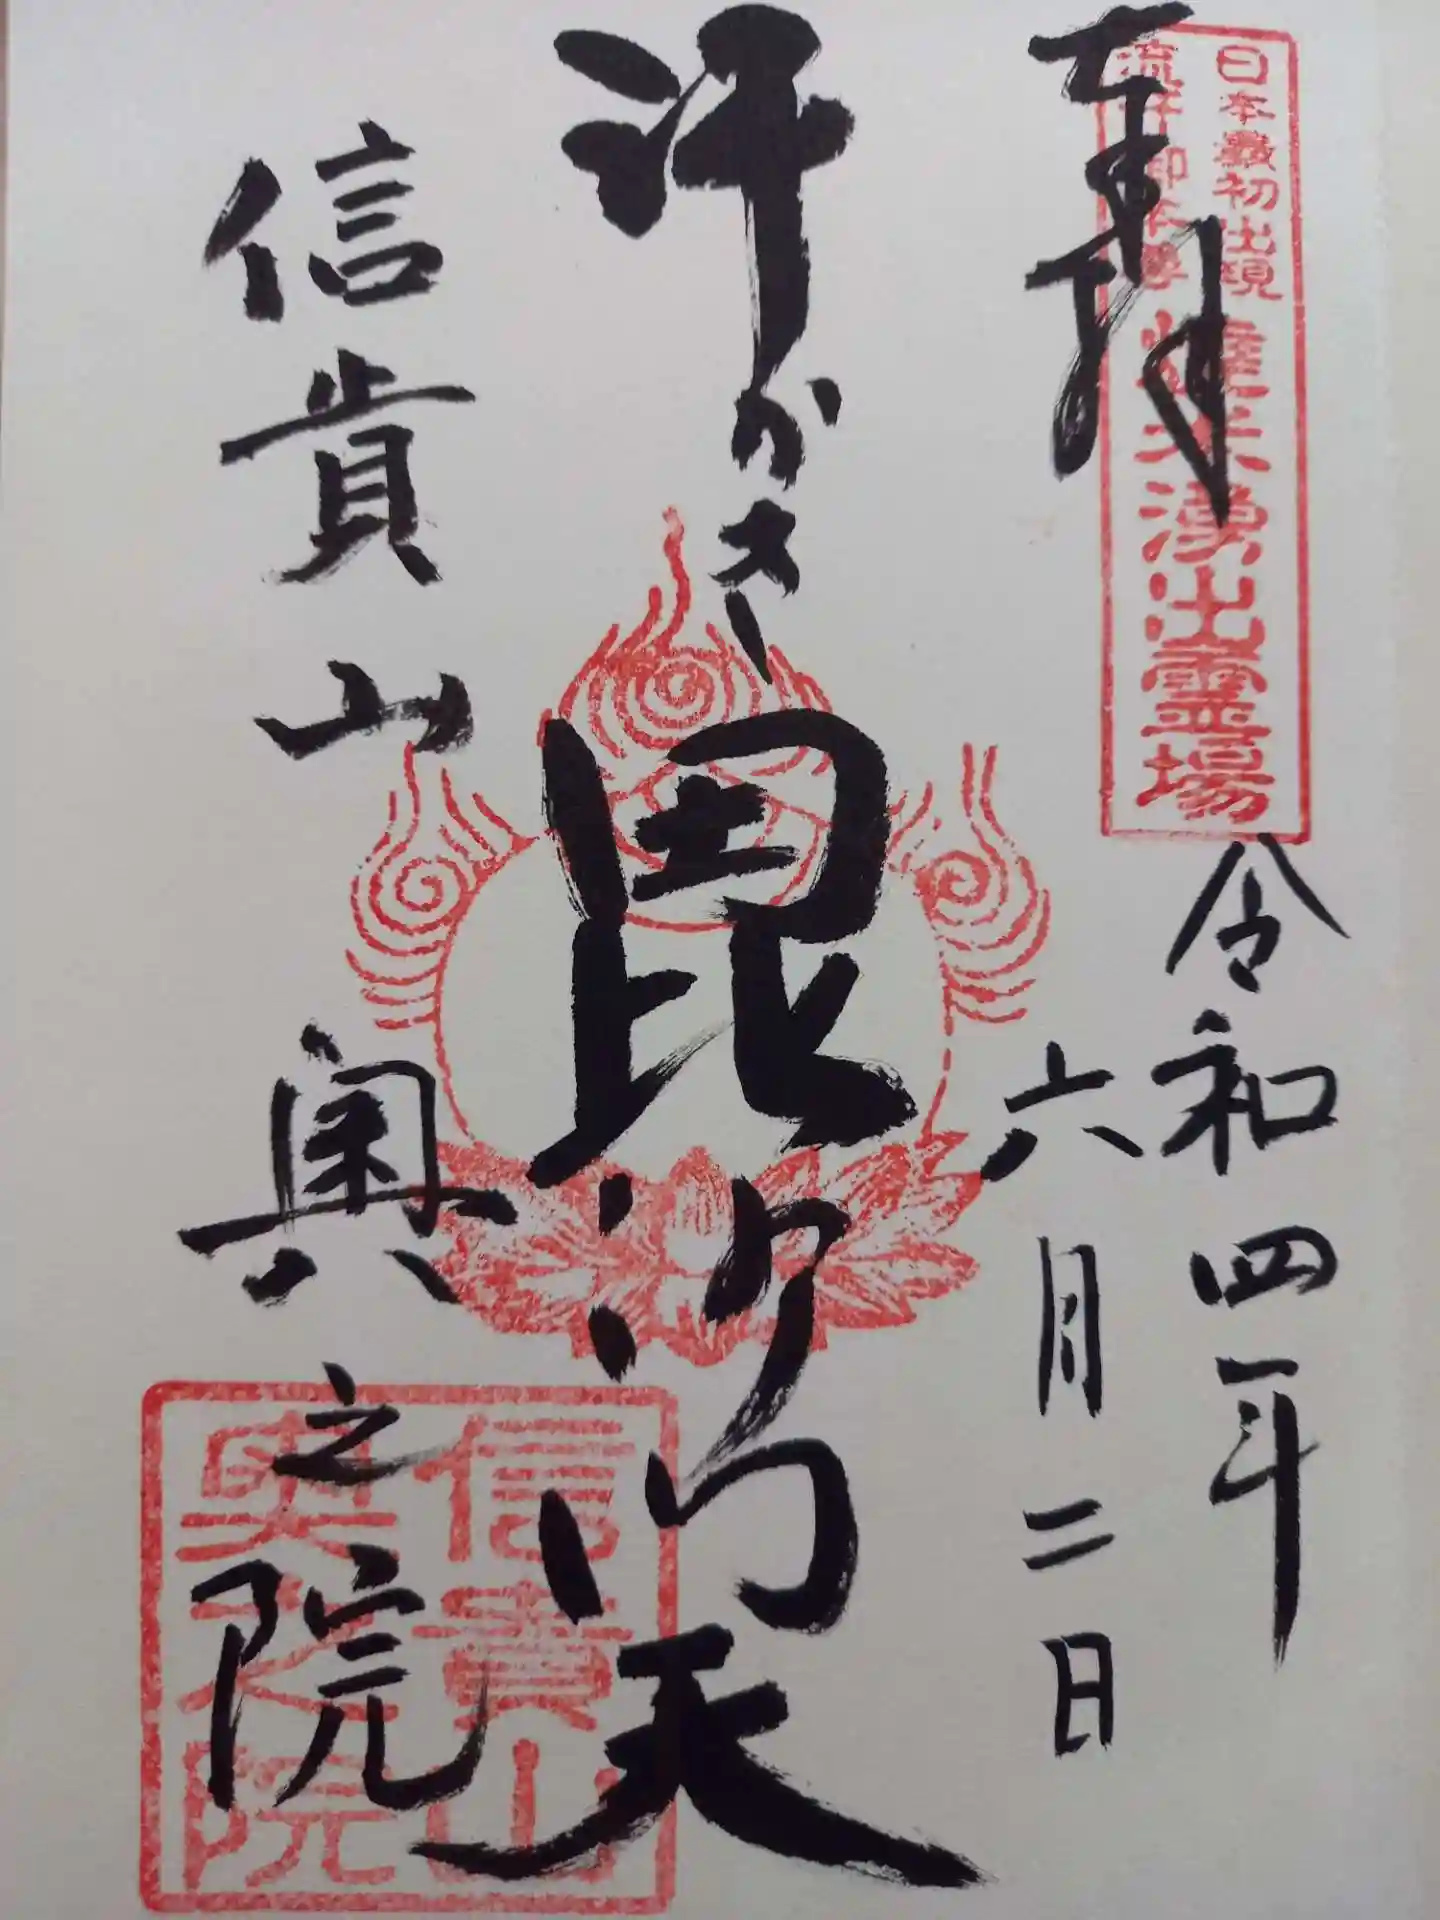 奉拝
日本最初出現
流汗御本尊
燋米湧出霊場
令和四年
六月二日
汗かき毘沙門天
信貴山 奥之院
信貴山
奥之院